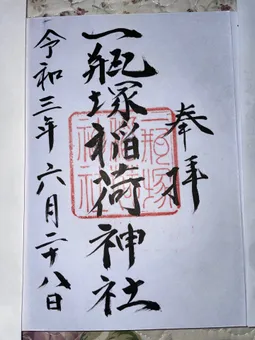 奉拝
一瓶塚稲荷神社
令和三年六月二十八日